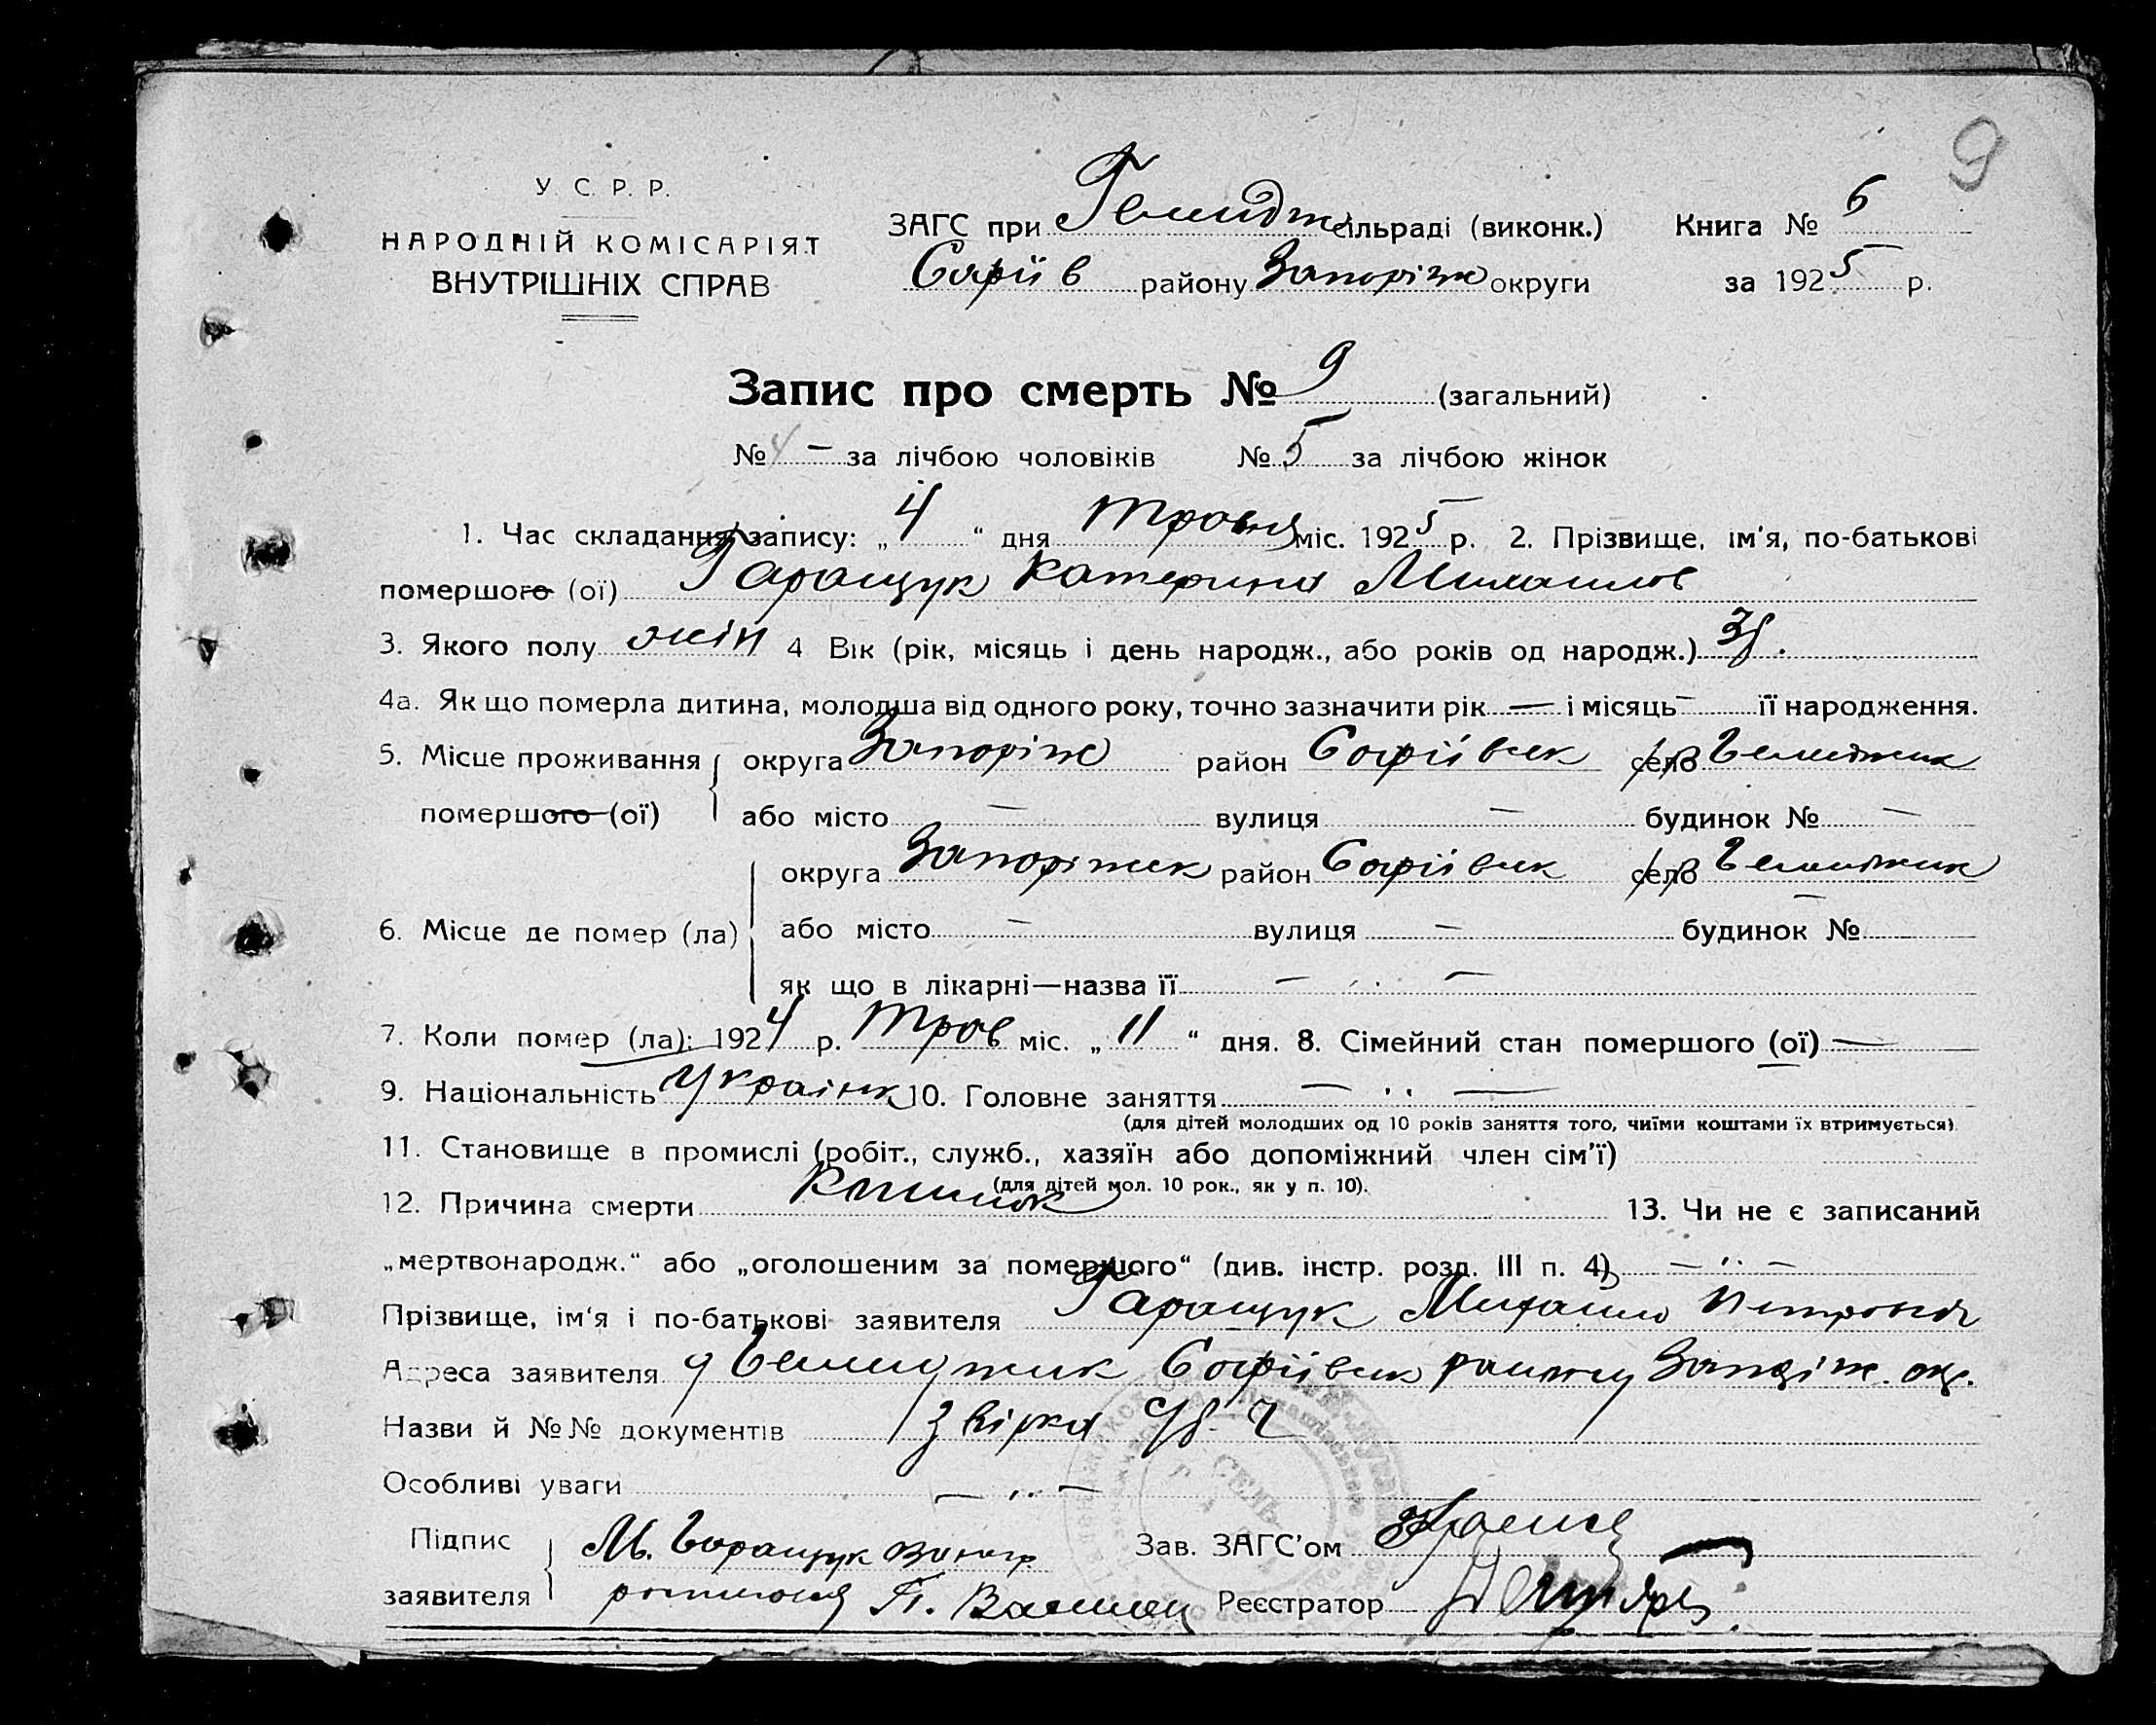 9
У. С. Р. Р.
НАРОДНІЙ КОМІСАРІЯТ
ВНУТРІШНІХ СПРАВ
ЗАГС при сільраді (виконк.) Книга № 6
Софіїв району Запоріж округи за 1925 р.
Запис про смерть № 9 (загальний)
№ 4 — за лічбою чоловіків № 5 за лічбою жінок
1. Час складання запису: „ 4 “ дня травня міс. 1925 р. 2. Прізвище, ім'я, по-батькові
помершого (ої) Гаращук Катерина Михаилов
3. Якого полу жін 4 Вік (рік, місяць і день народж., або років од народж.)
4а. Як що померла дитина, молодша від одного року, точно зазначити рік — і місяць — її народження.
5. Місце проживання округа Запоріж район Софіївск село
помершого (ої) або місто — вулиця — будинок № —
округа Запоріжск район Софіївск село
6. Місце де помер (ла) або місто — вулиця — будинок № —
як що в лікарні—назва її — „ —
7. Коли помер (ла): 1924 р. трав міс. „ 11 “ дня. 8. Сімейний стан помершого (ої) —
9. Національність Українк 10. Головне заняття — „ —
(для дітей молодших од 10 років заняття того, чиїми коштами їх втримується).
11. Становище в промислі (робіт., служб., хазяїн або допоміжний член сім'ї)
(для дітей мол. 10 рок., як у п. 10).
12. Причина смерти 13. Чи не є записаний
„мертвонародж.“ або „оголошеним за помершого“ (див. інстр. розд. III п. 4) — „ —
Прізвище, ім'я і по-батькові заявителя Гаращук Михайло
Адреса заявителя Софіївск району Запоріж. ок.
Назви й №№ документів
Особливі уваги — „ —
Підпис М. Гаращук Зав. ЗАГС'ом
заявителя П. Реєстратор
СЕЛЬ